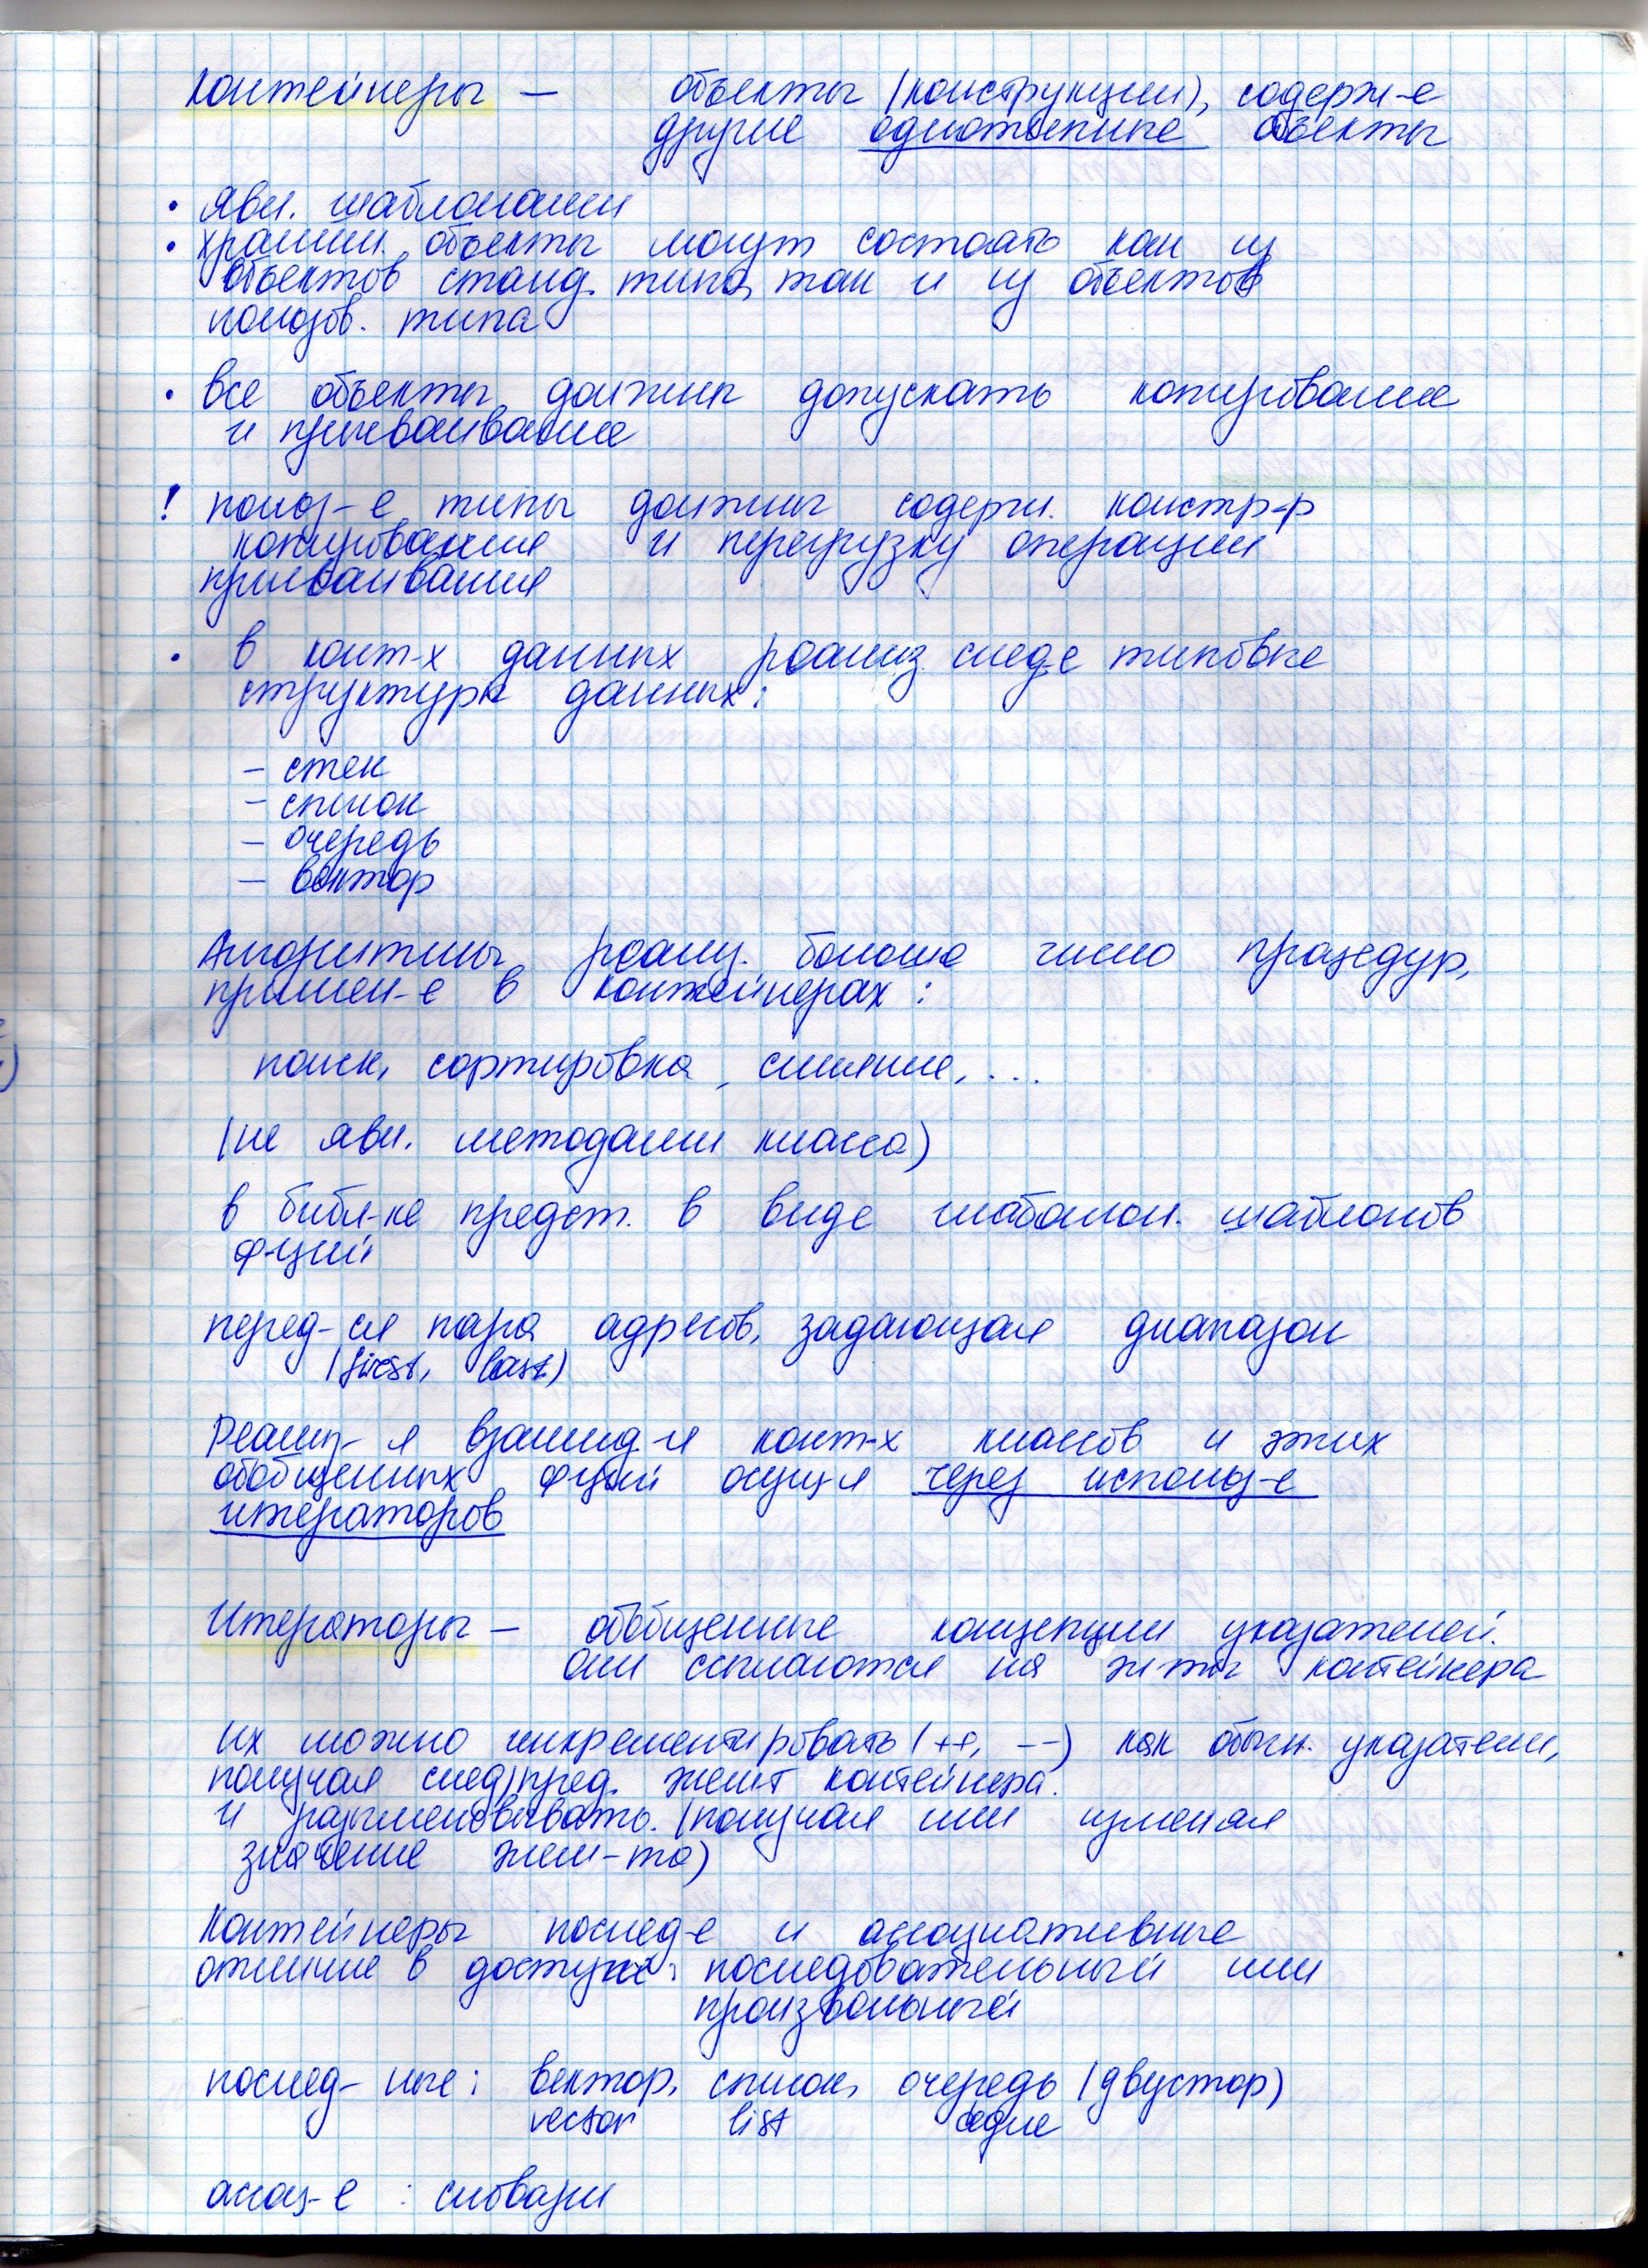 Контейнеры — объекты (конструкции), содерж-е
другие однотипные объекты
• явл. шаблонами
• хранимы. объекты могут состоять как из
объектов станд. типа, так и из объектов
пользов. типа
• все объекты должны допускать копирование
и присваивание
! польз-е типы должны содерж. констр-р
копирования и перегрузку операции
присваивания
• в конт-х данных реализ. след-е типовые
структуры данных:
- стек
- список
- очередь
- вектор
Алгоритмы реализ. большое число процедур,
примен-е в контейнерах:
поиск, сортировка, слияние, ...
(не явл. методами класса)
в библ-ке предст. в виде шаблон. шаблонов
ф-ций
перед-ся пара адресов, задающая диапазон
(first, last)
Реализ-я взаимод-я конт-х классов и этих
обобщенных ф-ций осущ-я через использ-е
итераторов
Итераторы — обобщенные концепции указателей.
они ссылаются на эл-ты контейнера
Их можно инкрементировать (++, --) как обычн. указатели,
получая след/пред. элемт контейнера.
и разыменовывать. (получая или изменяя
значение элем-та)
Контейнеры послед-е и ассоциативные
отличие в доступе: последовательный или
произвольный
послед-ные: вектор, список, очередь (двустор)
vector list
ассоц-е : словари